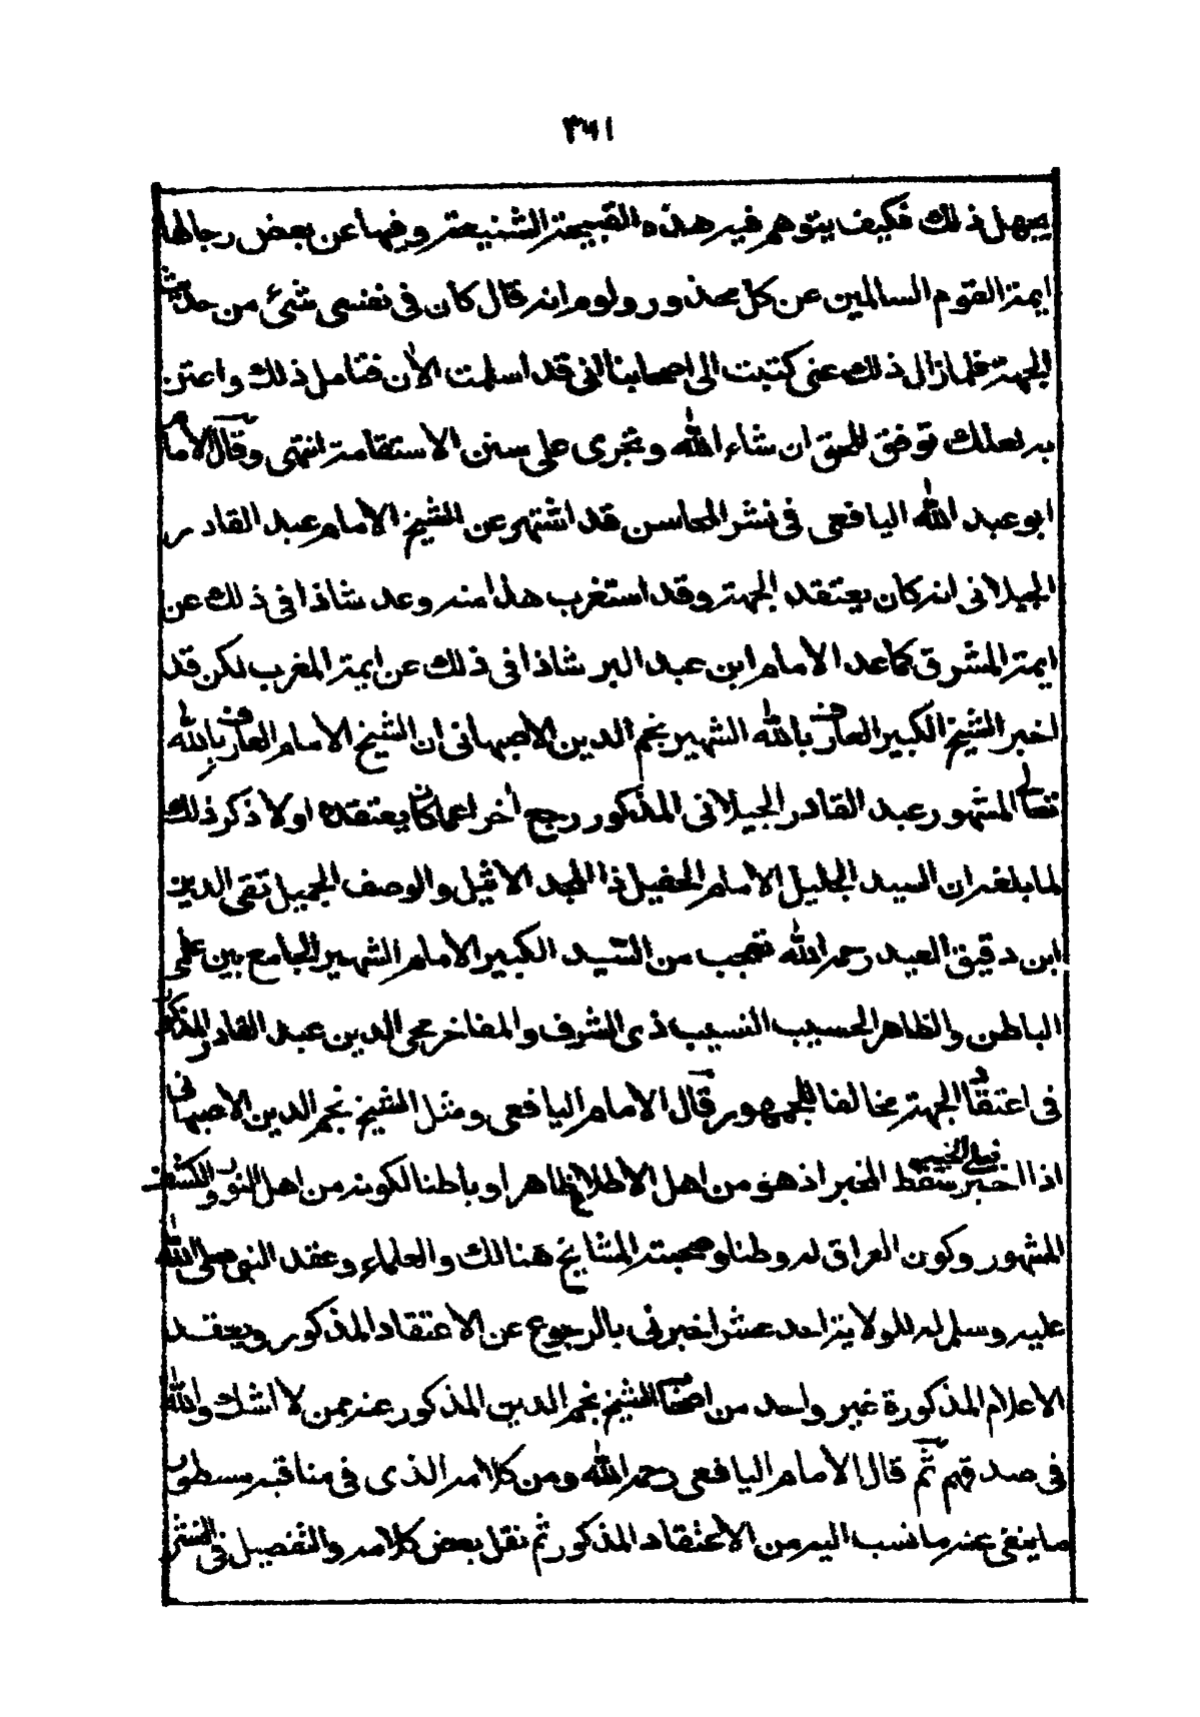 ٣٦١
يجهل ذلك فكيف يتوهم فيه هذه القبيحة الشنيعة وفيها عن بعض رجالها
ايمة القوم السالمين عن كل محذور ولوم انه قال كان فى نفسى شىء من حديث
الجهة فلما زال ذلك عنى كتبت الى اصحابنا انى قد اسلمت الآن فتامل ذلك واعتن
به لعلك توفق للحق ان شاء الله وتجرى على سنن الاستقامة انتهى وقال الامام
ابو عبد الله اليافعى فى نشر المحاسن قد اشتهر عن الشيخ الامام عبد القادر
الجيلانى انه كان يعتقد الجهة وقد استغرب هذا منه وعد شاذا فى ذلك عن
ايمة المشرق كما عد الامام ابن عبد البر شاذا فى ذلك عن ايمة المغرب لكن قد
اخبر الشيخ الكبير العارف بالله الشهير نجم الدين الاصبهانى ان الشيخ الامام العارف بالله
تعالى المشهور عبد القادر الجيلانى المذكور رجع آخرا عما كان يعتقده اولا ذكر ذلك
لما بلغه ان السيد الجليل الامام الحفيل ذا المجد الاثيل والوصف الجميل تقى الدين
ابن دقيق العيد رحمه الله تعجب من السيد الكبير الامام الشهير الجامع بين علمى
الباطن والظاهر الحسيب النسيب ذى الشرف والمفاخر محى الدين عبد القادر المذكور
فى اعتقاد الجهة مخالفا للجمهور قال الامام اليافعى ومثل الشيخ نجم الدين الاصبهانى
اذا اخبر فعلى الخبير سقط المخبر اذ هو من اهل الاطلاع ظاهرا وباطنا لكونه من اهل النور والكشف
المشهور وكون العراق له وطنا وصحبته المشايخ هنالك والعلماء وعقد النبى صلى الله
عليه وسلم له للولاية احد عشر اخبرنى بالرجوع عن الاعتقاد المذكور وبعقد
الاعلام المذكورة غير واحد من اصحاب الشيخ نجم الدين المذكور عنه ممن لا اشك والله
فى صدقهم ثم قال الامام اليافعى رحمه الله ومن كلامه الذى فى مناقبه مسطور
ما ينفى عنه ما نسب اليه من الاعتقاد المذكور ثم نقل بعض كلامه والتفصيل فى النشر